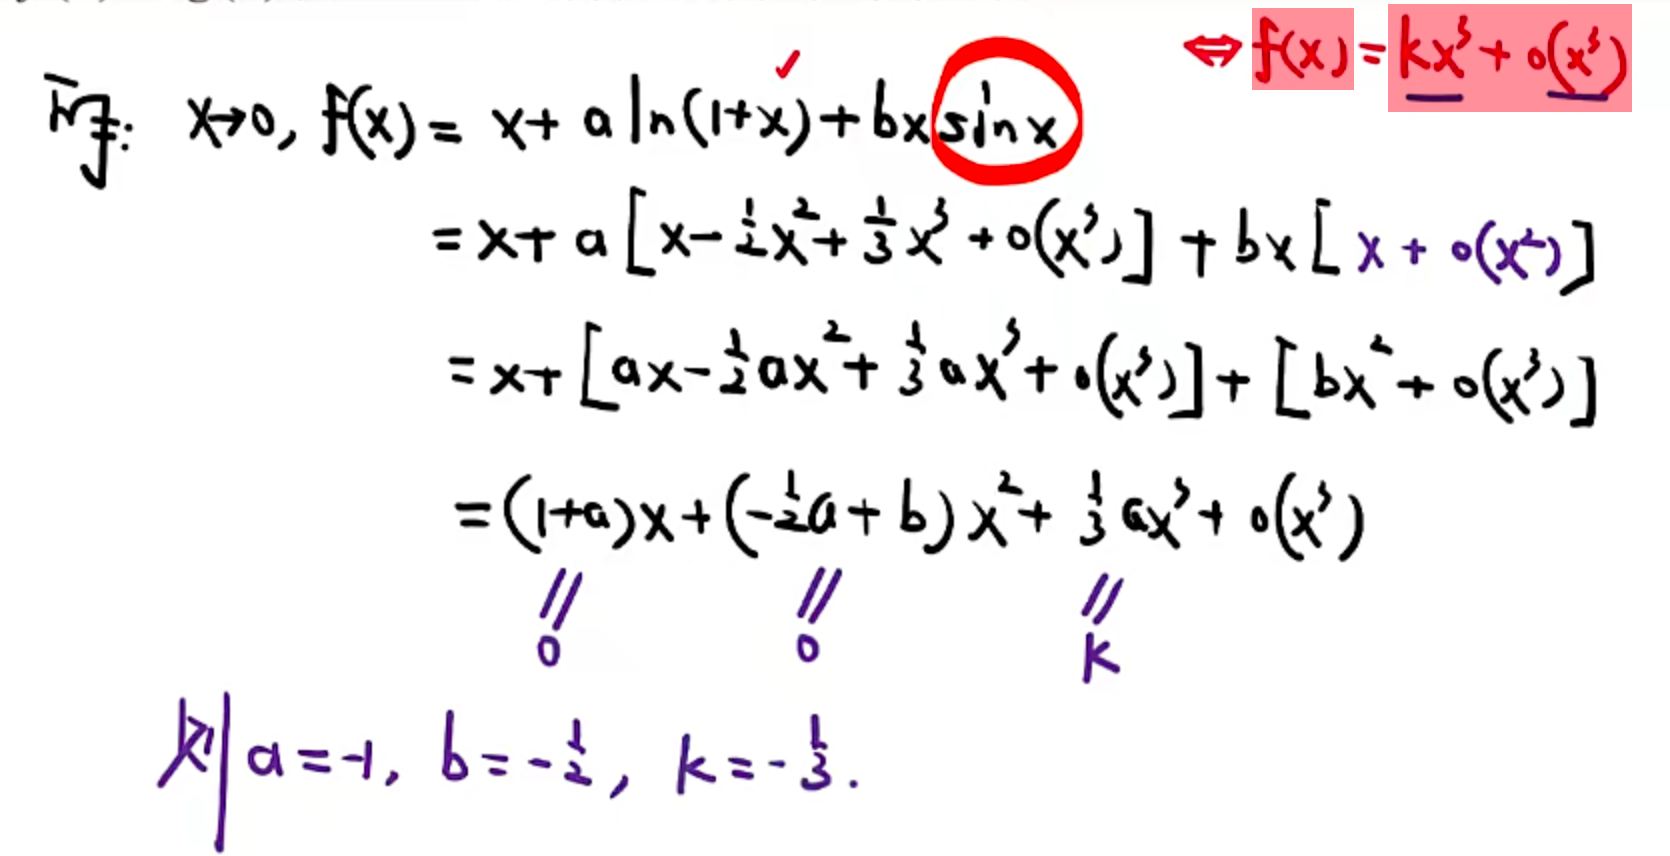 ⇔ f(x) = kx³ + o(x³)
解: x→0, f(x) = x + a ln(1+x) + bx sin x
= x + a[x - 1/2 x² + 1/3 x³ + o(x³)] + bx[x + o(x²)]
= x + [ax - 1/2 ax² + 1/3 ax³ + o(x³)] + [bx² + o(x³)]
= (1+a)x + (-1/2 a + b)x² + 1/3 ax³ + o(x³)
= 0 = 0 = k
则 a = -1, b = -1/2, k = -1/3.